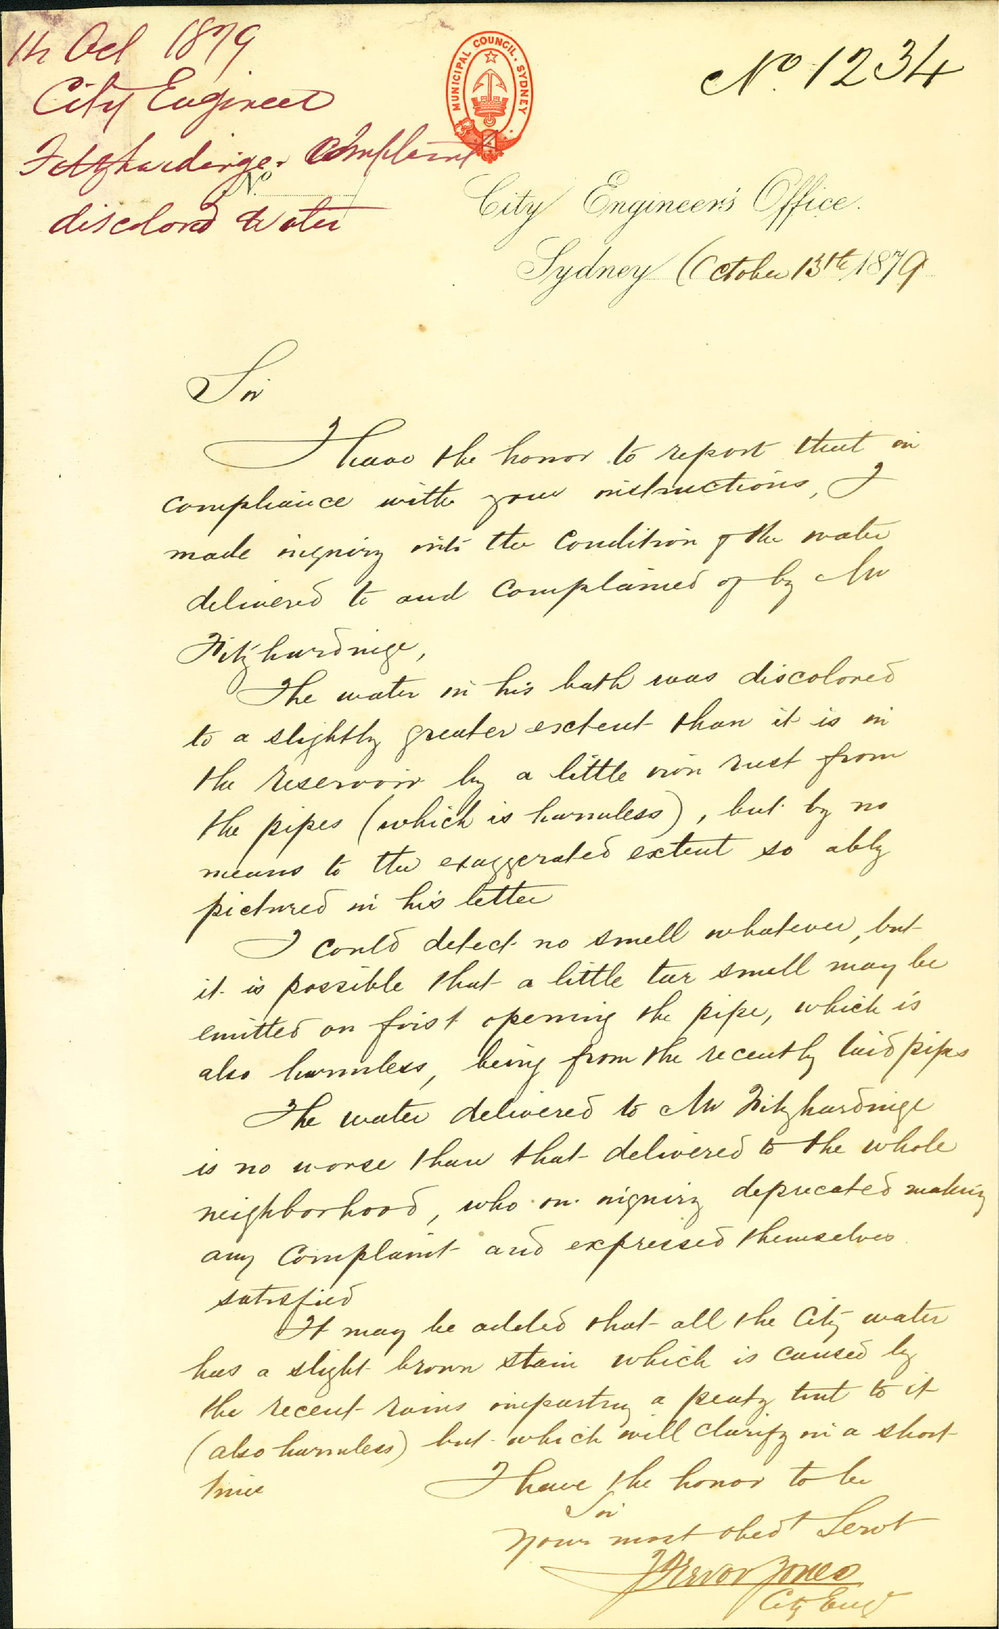 14 Oct 1879
City Engineer
Fitzhardinge. Complaint
discolored Water
No
MUNICIPAL COUNCIL. SYDNEY
No. 1234
City Engineer's Office.
Sydney October 13th 1879
Sir
I have the honor to report that in
compliance with your instructions, I
made inquiry into the condition of the water
delivered to and complained of by Mr
Fitzhardinge,
The water in his bath was discolored
to a slightly greater extent than it is in
the reservoir by a little iron rust from
the pipes (which is harmless), but by no
means to the exaggerated extent so ably
pictured in his letter
I could detect no smell whatever, but
it is possible that a little tar smell may be
emitted on first opening the pipe, which is
also harmless, being from the recently laid pipes
The water delivered to Mr Fitzhardinge
is no worse than that delivered to the whole
neighborhood, who on inquiry deprecated making
any complaint and expressed themselves
satisfied
It may be added that all the City water
has a slight brown stain which is caused by
the recent rains imparting a peaty tint to it
(also harmless) but which will clarify in a short
time
I have the honor to be
Sir
Your most obedt Servt
J Trevor Jones
City Engr